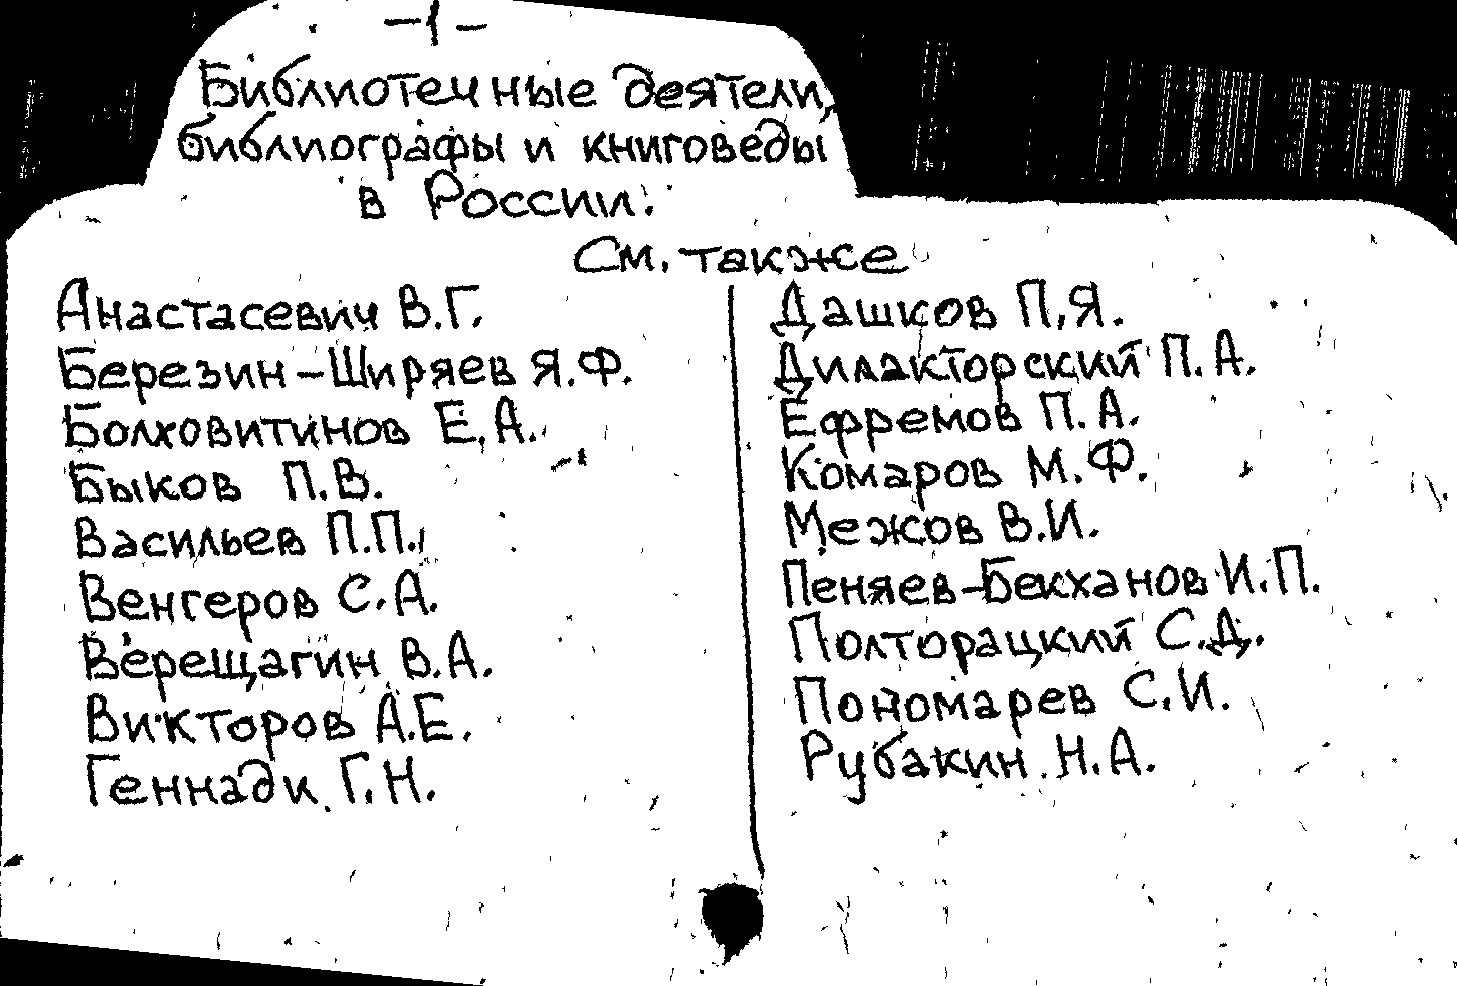 -1-
Библиотечные деятели,
библиографы и книговеды
в России.
См. также
Анастасевич В.Г.
Березин-Ширяев Я.Ф.
Болховитинов Е.А.
Быков П.В.
Васильев П.П.
Венгеров С.А.
Верещагин В.А.
Викторов А.Е.
Геннади Г.Н.
Дашков П.Я.
Дилакторский П.А.
Ефремов П.А.
Комаров М.Ф.
Межов В.И.
Пеняев-Бекханов И.П.
Полторацкий С.Д.
Пономарев С.И.
Рубакин Н.А.